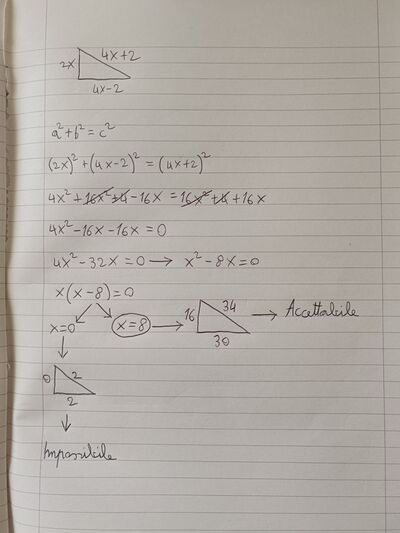 2x 4x+2
4x-2
a²+b²=c²
(2x)²+(4x-2)²=(4x+2)²
4x²+16x²+4-16x=16x²+4+16x
4x²-16x-16x=0
4x²-32x=0→ x²-8x=0
x(x-8)=0
x=0 x=8 → 16 34 → Accettabile
30
0 2
2
Impossibile